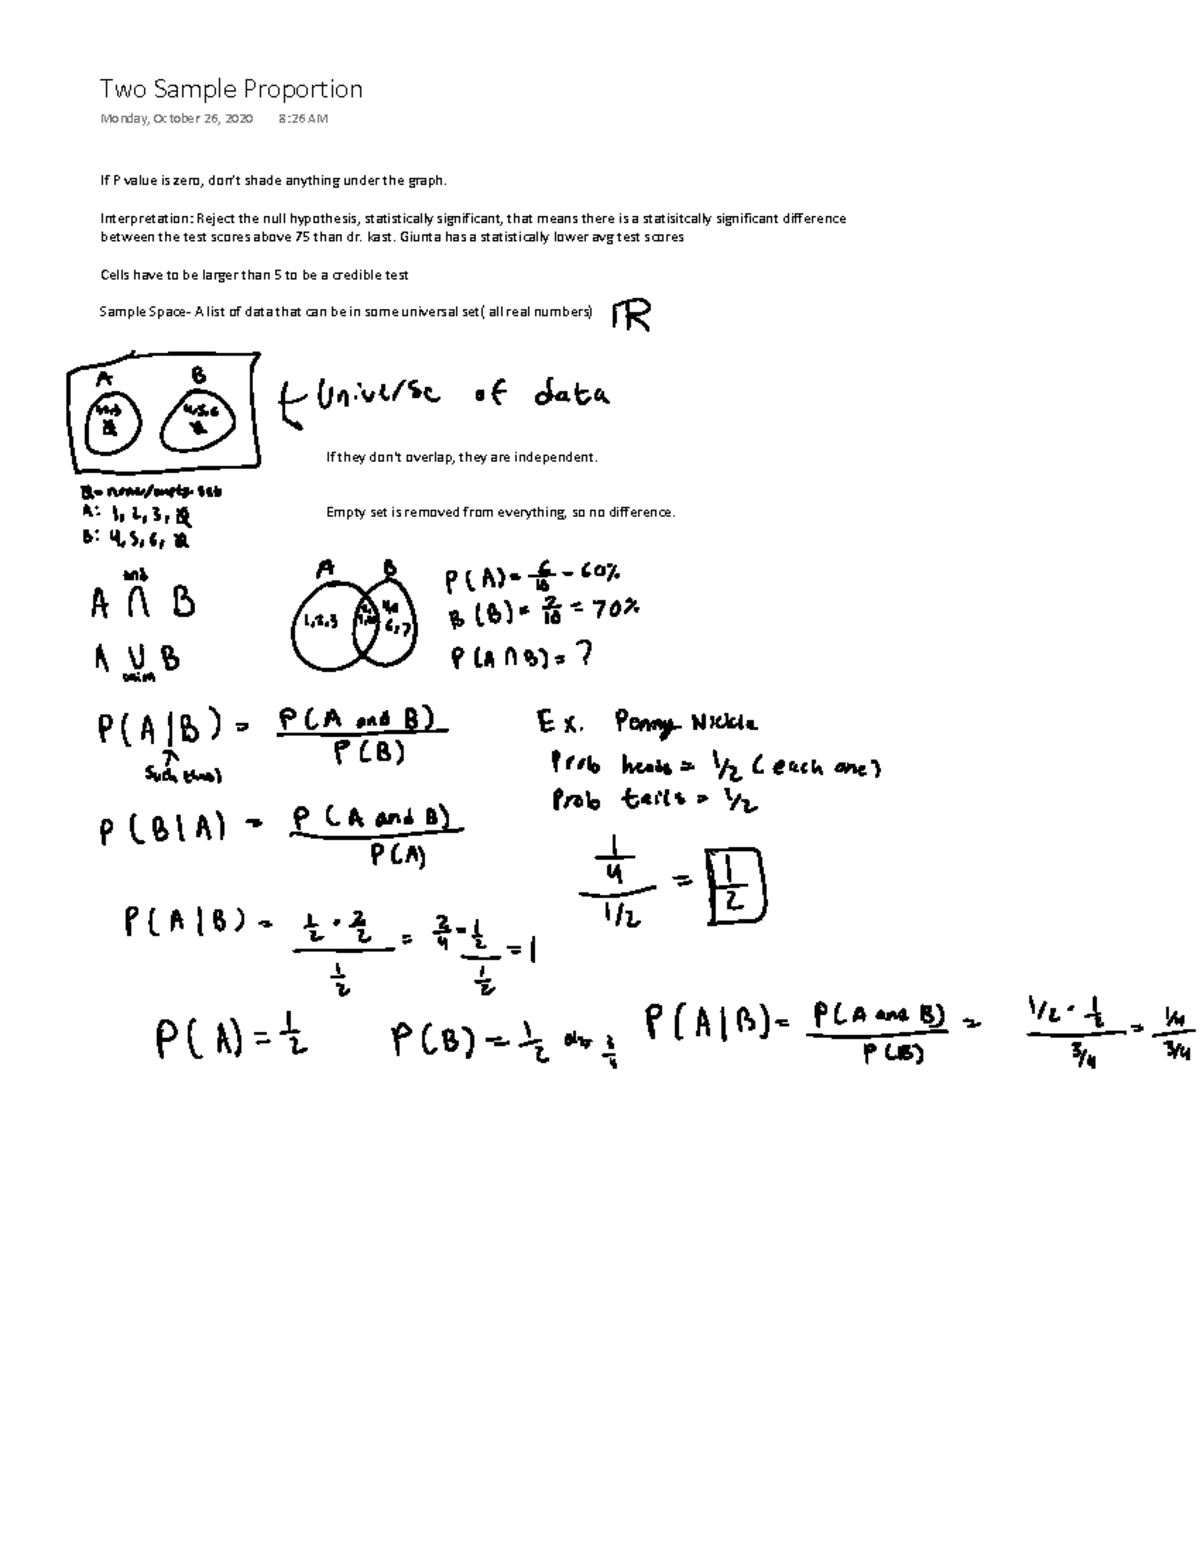 Two Sample Proportion
Monday, October 26, 2020 8:26 AM
If P value is zero, don't shade anything under the graph.
Interpretation: Reject the null hypothesis, statistically significant, that means there is a statisitcally significant difference
between the test scores above 75 than dr. kast. Giunta has a statistically lower avg test scores
Cells have to be larger than 5 to be a credible test
Sample Space- A list of data that can be in some universal set( all real numbers) ℝ
A B
4,5,6
Universe of data
If they don't overlap, they are independent.
A: 1, 2, 3,
B: 4, 5, 6,
Empty set is removed from everything, so no difference.
and
A ∩ B
A ∪ B
union
A B
1,2,3
6,7
P(A) = 6/10 - 60%
B(B) = 7/10 = 70%
P(A ∩ B) = ?
P(A|B) = P(A and B) / P(B)
such that
P(B|A) = P(A and B) / P(A)
Ex. Penny Nickle
Prob heads = 1/2 (each one)
Prob tails = 1/2
1/4 / 1/2 = 1/2
P(A|B) = 1/2 · 2/2 / 1/2 = 2/4 = 1/2 / 1/2 = 1
P(A) = 1/2
P(B) = 1/2
P(A|B) = P(A and B) / P(B) = 1/2 · 1/2 / 3/4 = 1/4 / 3/4